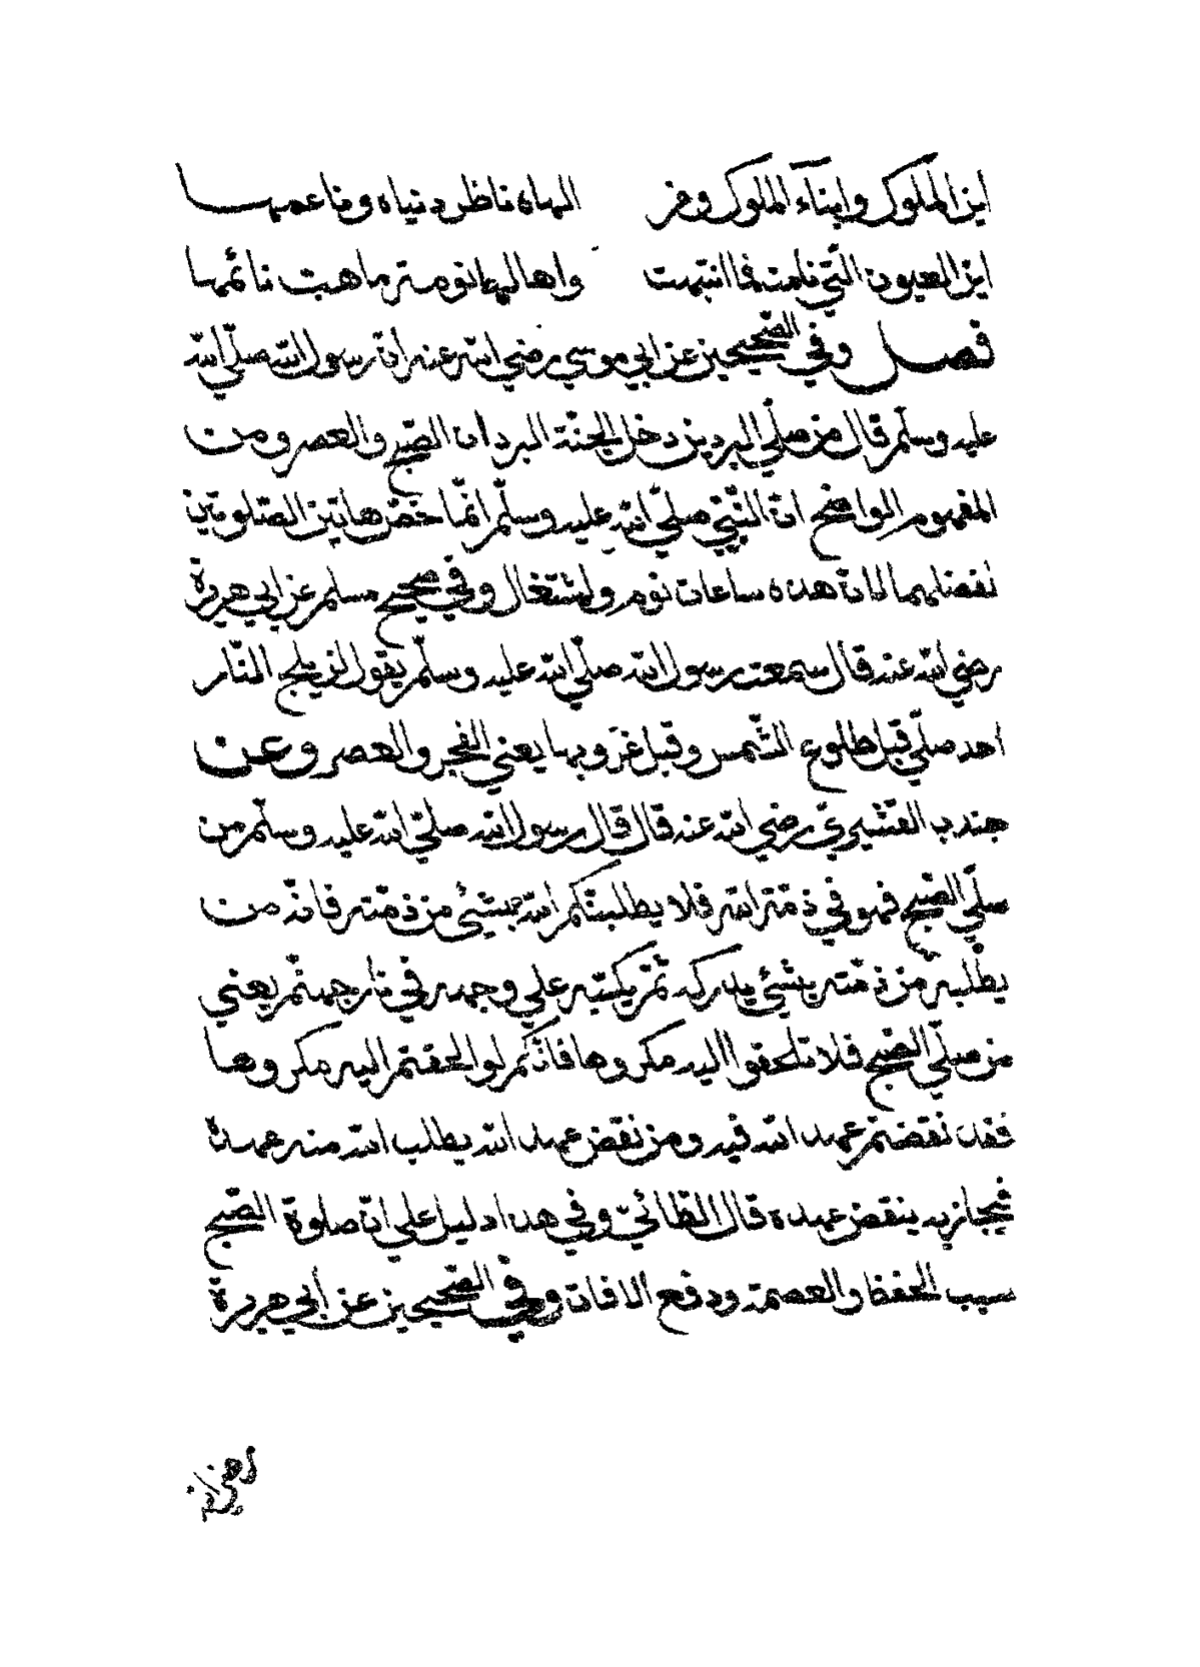 اين الملوك وابناء الملوك ومن الهاه ناظر دنياه وناعمها
اين العيون التي نامت فما انتبهت واها لها نومة ما هبت نائمها
فصل وفي الصحيحين عن ابي موسي رضي الله عنه انّ رسول الله صلّي الله
عليه وسلّم قال من صلّي البردين دخل الجنّة البردان الصّبح والعصر ومن
المفهوم الواضح انّ النّبيّ صلّي الله عليه وسلّم انّما خصّ هاتين الصّلوتين
لفضلهما لانّ هذه ساعات نوم واشتغال وفي صحيح مسلم عن ابي هريرة
رضي الله عنه قال سمعت رسول الله صلّي الله عليه وسلّم يقول لن يلج النّار
احد صلّي قبل طلوع الشّمس وقبل غروبها يعني الفجر والعصر وعن
جندب القشيريّ رضي الله عنه قال قال رسول الله صلّي الله عليه وسلّم من
صلّي الصّبح فهو في ذمّة الله فلا يطلبنّكم الله بشئ من ذمّته فانّه من
يطلبه من ذمّته بشئ يدركه ثمّ يكبّه علي وجهه في نار جهنّم يعني
من صلّي الصّبح فلا تلحقوا اليه مكروها فانّكم لو الحقتم اليه مكروها
فقد نقضتم عهد الله فيه ومن نقض عهد الله يطلب الله منه عهده
فيجازيه ينقض عهده قال الطّائيّ وفي هذا دليل علي انّ صلوة الصّبح
سبب الحفظ والعصمة ودفع الافات وفي الصّحيحين عن ابي هريرة